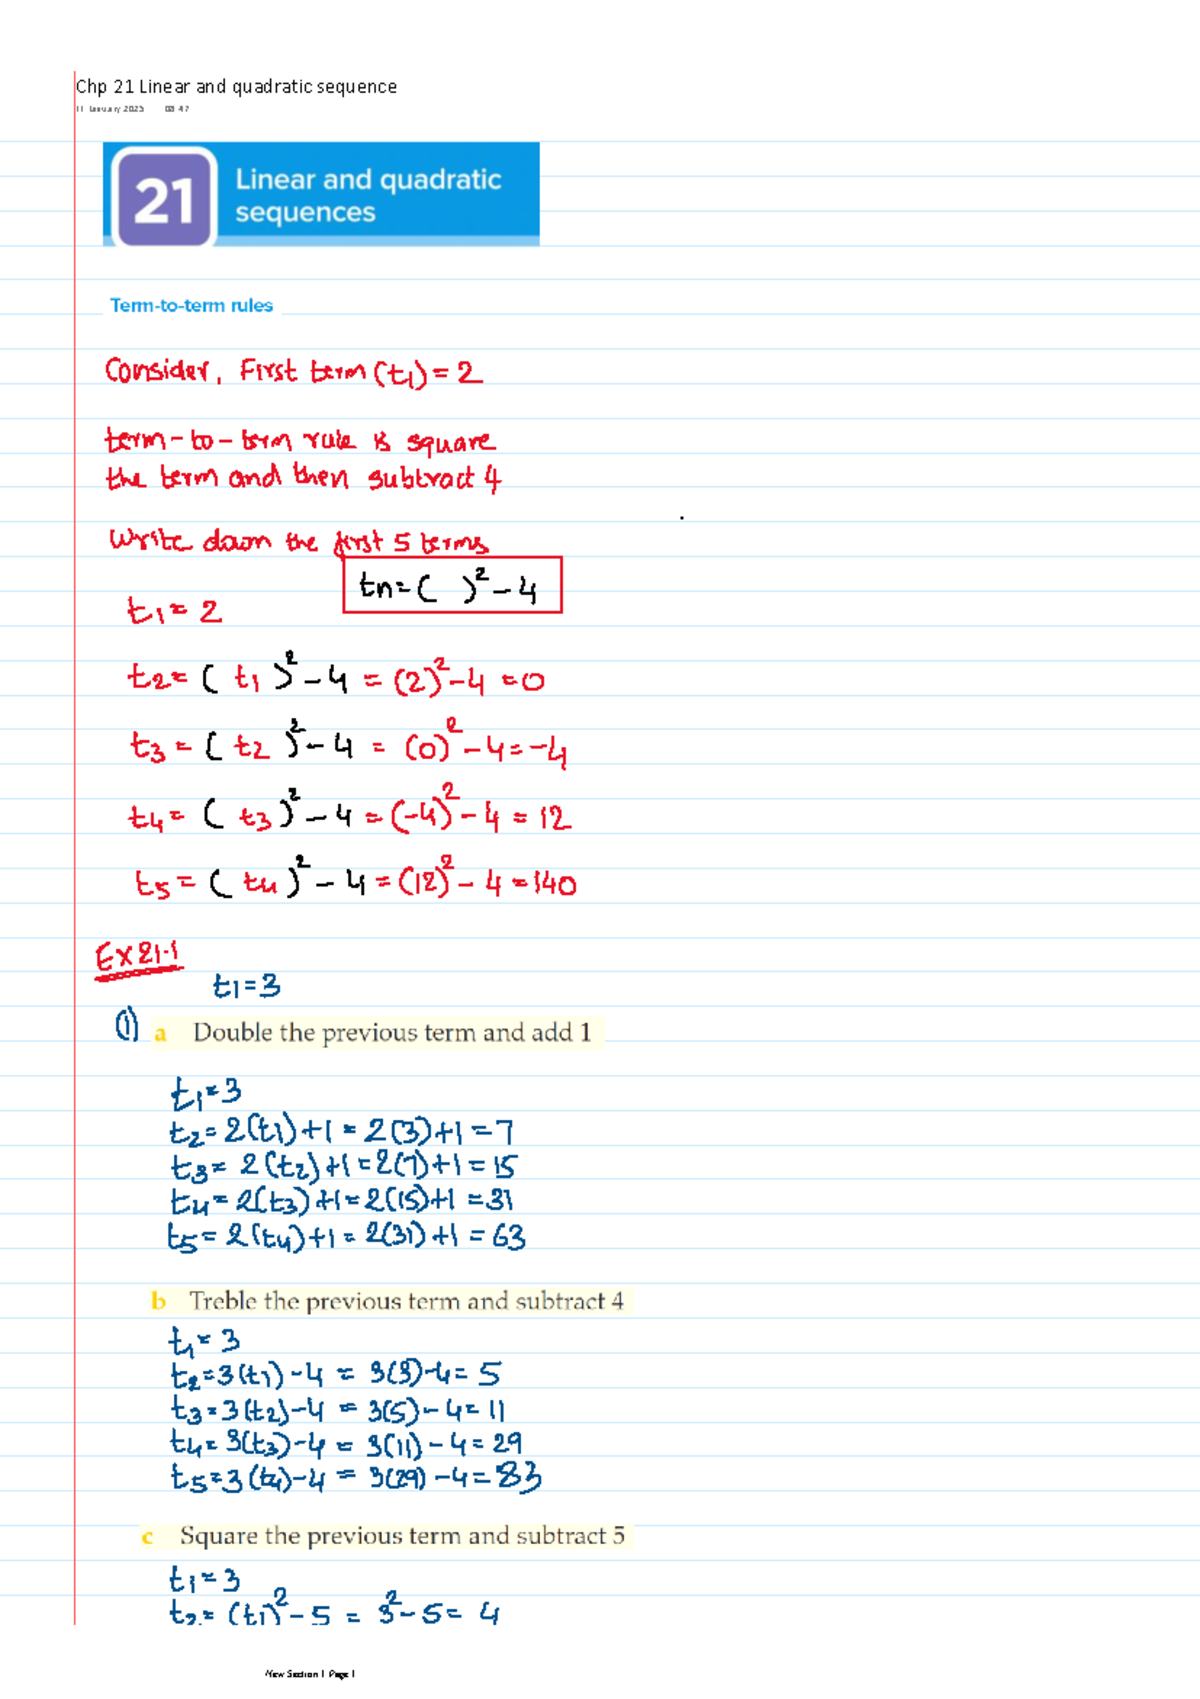 Chp 21 Linear and quadratic sequence
11 January 2025 08:47
21
Linear and quadratic
sequences
Term-to-term rules
Consider, First term (t1) = 2
term-to-term rule is square
the term and then subtract 4
Write down the first 5 terms
tn = ( )² - 4
t1 = 2
t2 = ( t1 )² - 4 = (2)² - 4 = 0
t3 = ( t2 )² - 4 = (0)² - 4 = -4
t4 = ( t3 )² - 4 = (-4)² - 4 = 12
t5 = ( t4 )² - 4 = (12)² - 4 = 140
Ex 21.1
t1 = 3
(1) a Double the previous term and add 1
t1 = 3
t2 = 2(t1) + 1 = 2(3) + 1 = 7
t3 = 2(t2) + 1 = 2(7) + 1 = 15
t4 = 2(t3) + 1 = 2(15) + 1 = 31
t5 = 2(t4) + 1 = 2(31) + 1 = 63
b Treble the previous term and subtract 4
t1 = 3
t2 = 3(t1) - 4 = 3(3) - 4 = 5
t3 = 3(t2) - 4 = 3(5) - 4 = 11
t4 = 3(t3) - 4 = 3(11) - 4 = 29
t5 = 3(t4) - 4 = 3(29) - 4 = 83
c Square the previous term and subtract 5
t1 = 3
t2 = (t1)² - 5 = 3² - 5 = 4
New Section 1 Page 1